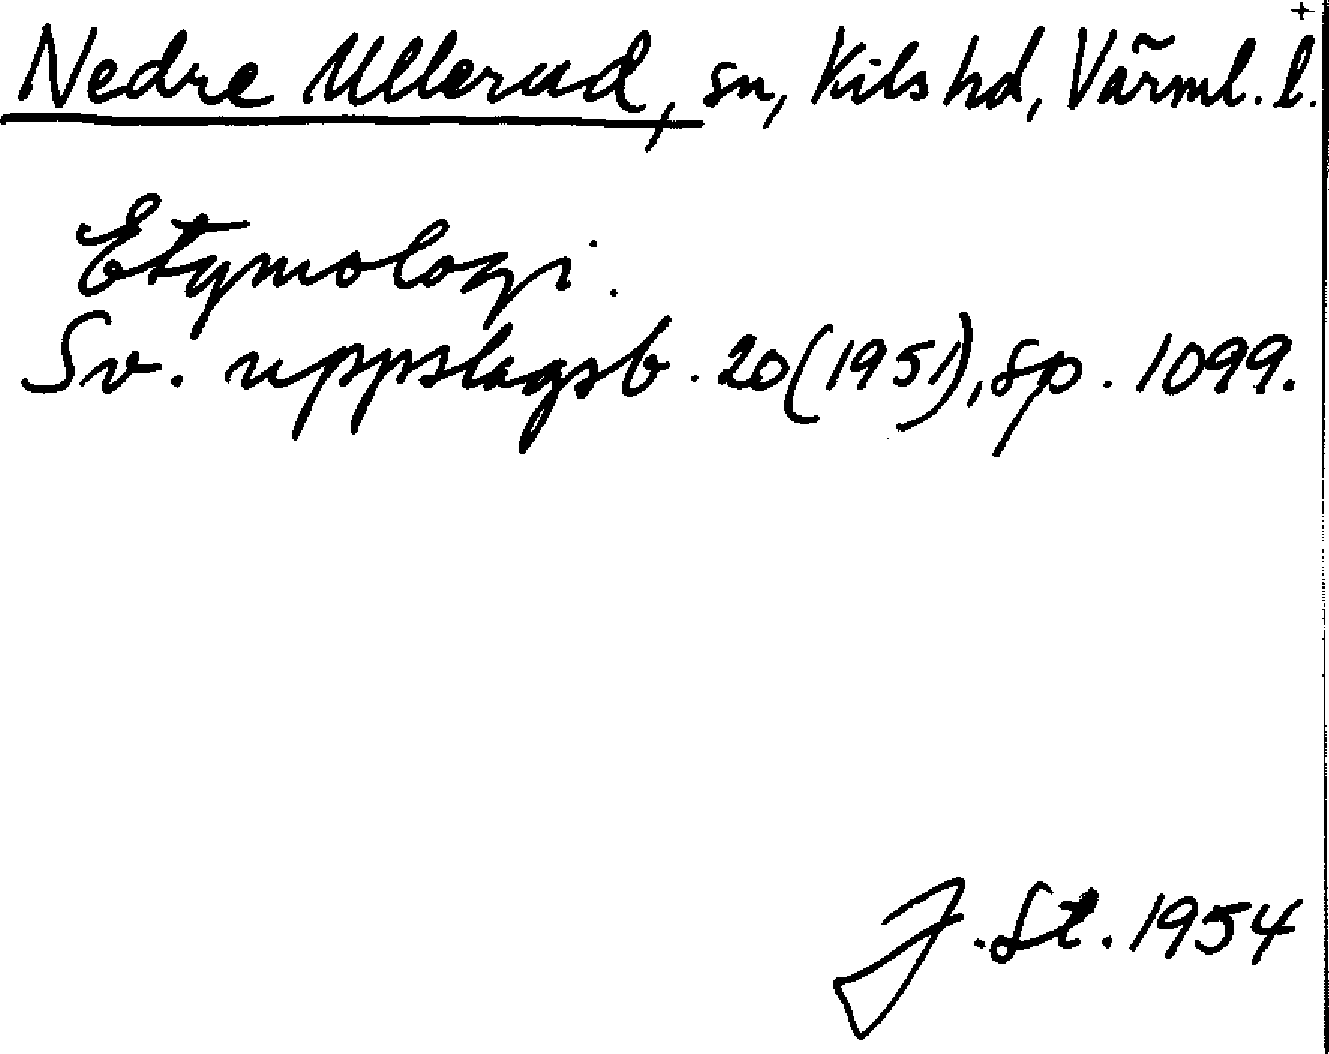 Nedre Ullerud, sn, Kils hd, Värml. l.
Etymologi.
Sv. uppslagsb. 20 (1951), sp. 1099.
J. St. 1954